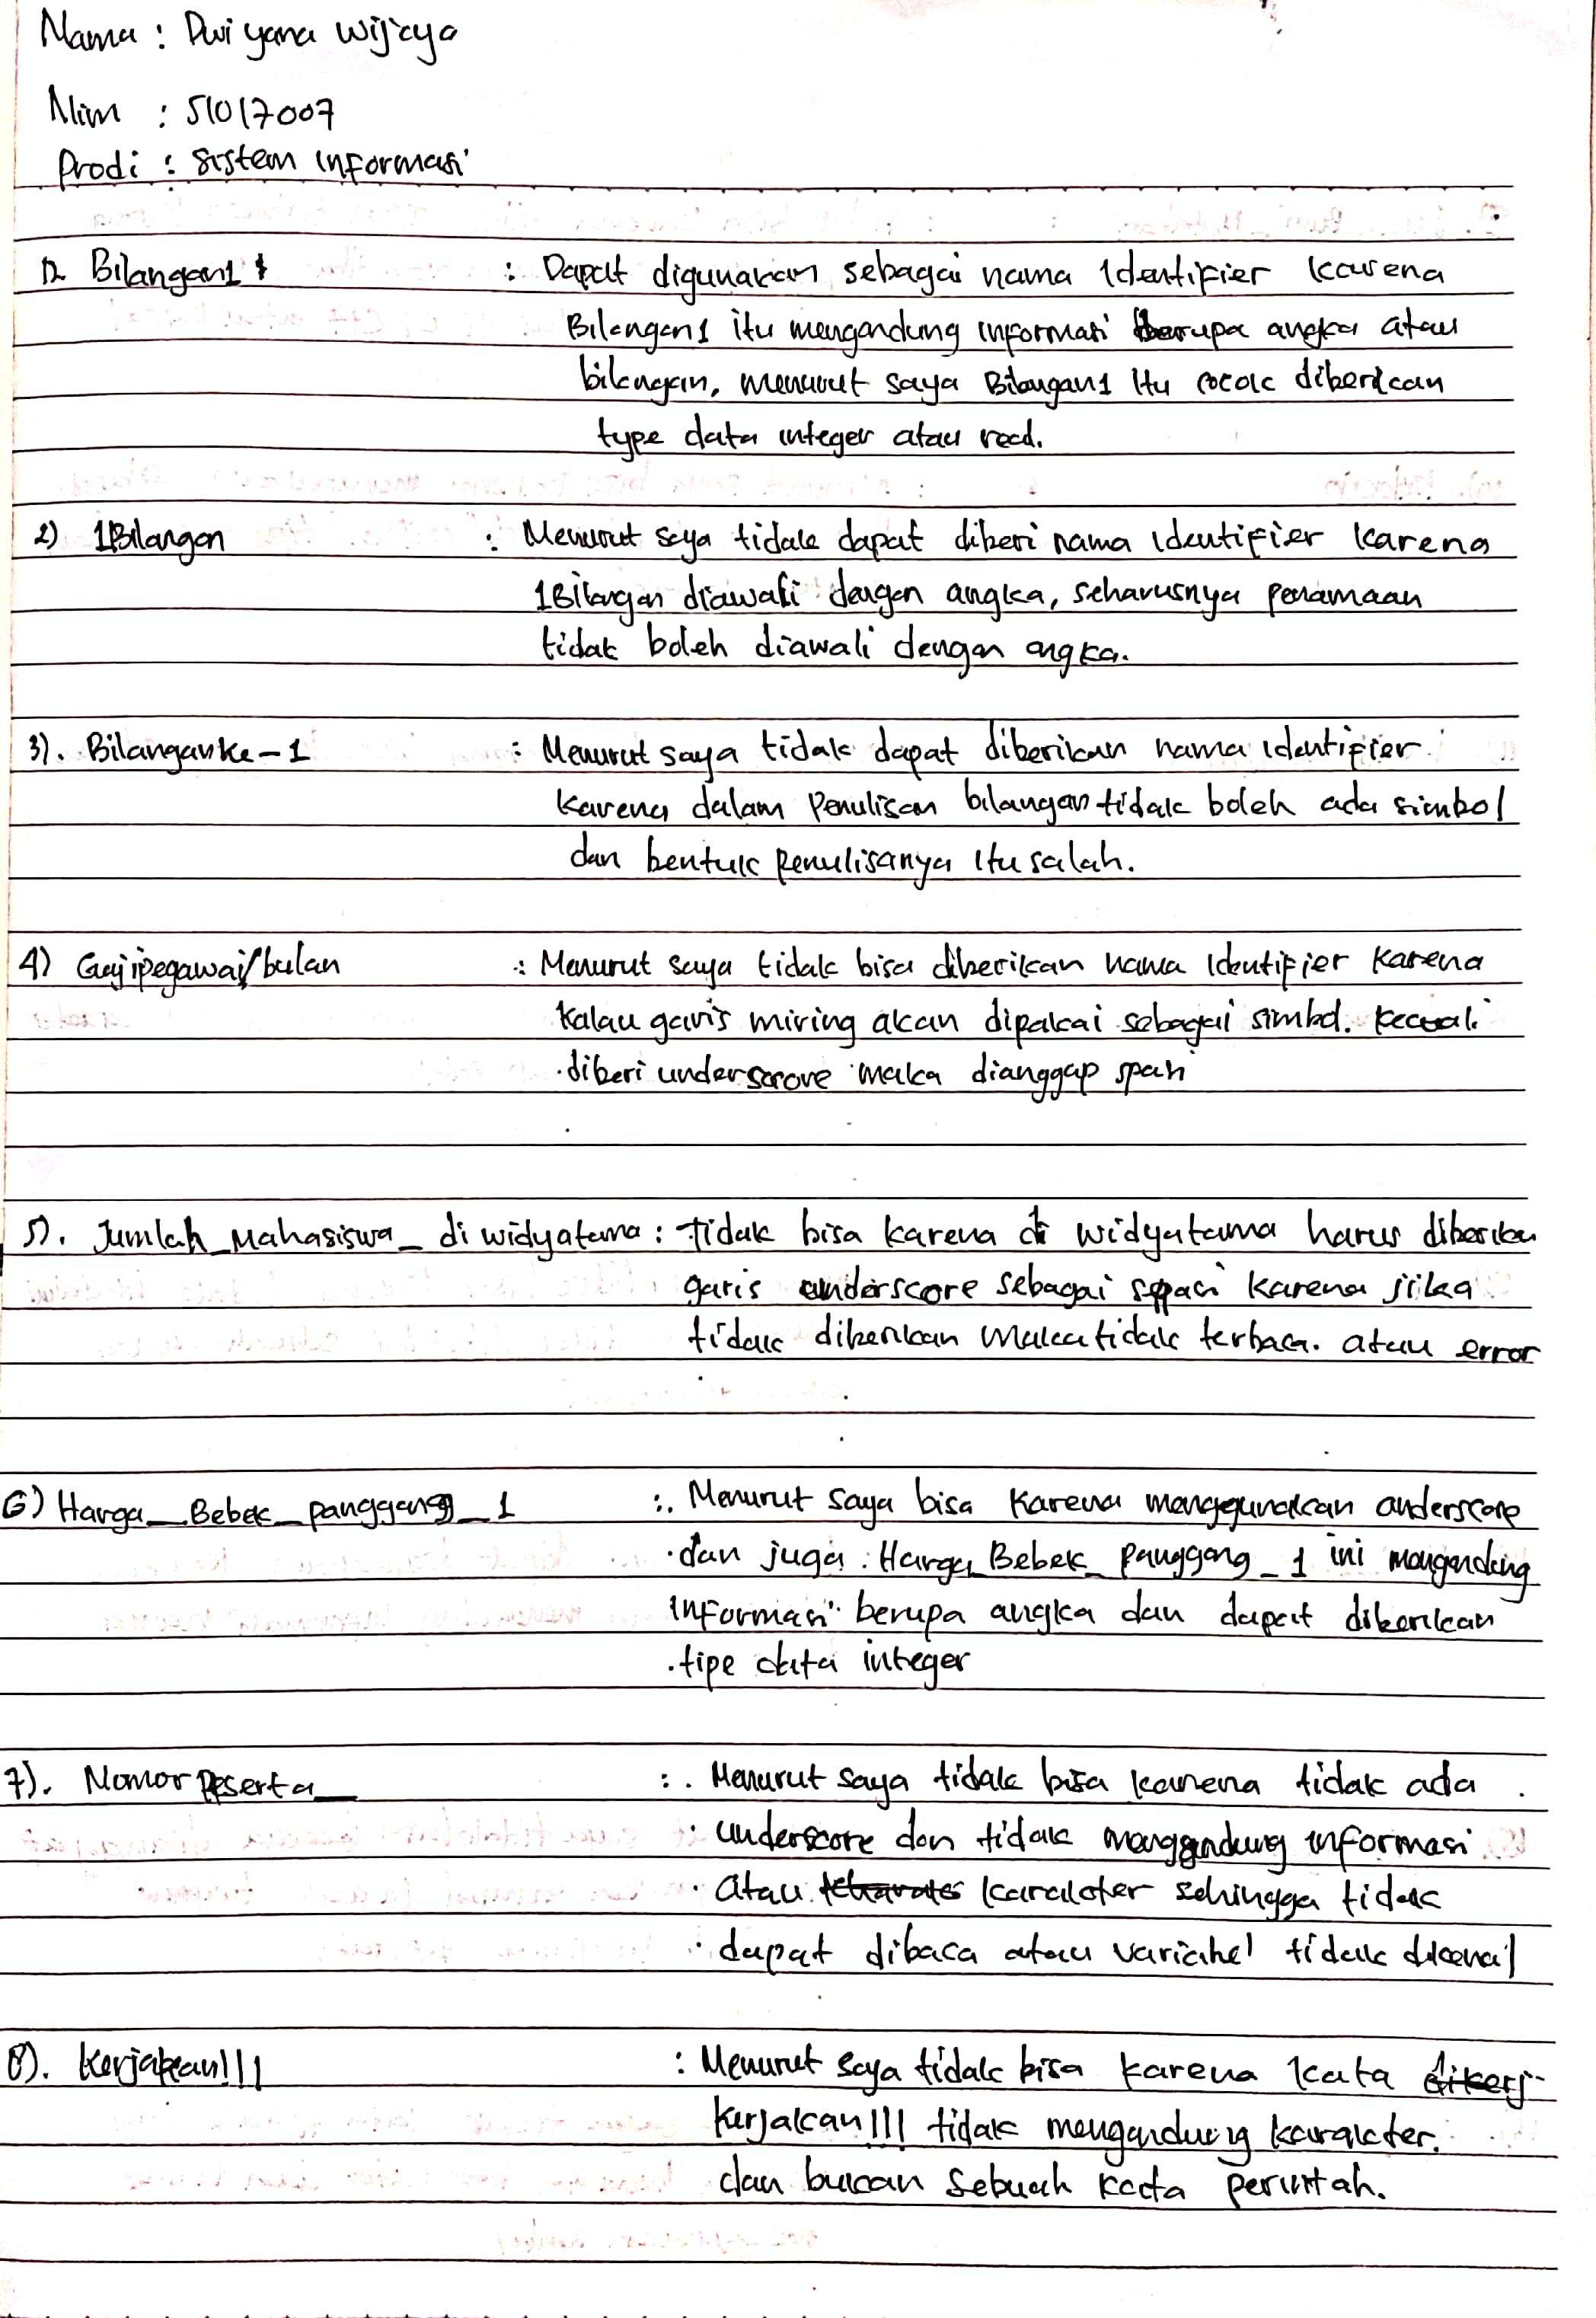 Nama : Dwi yana wijaya
Nim : 51017007
Prodi : sistem informasi
1). Bilangan1 : Dapat digunakan sebagai nama Identifier karena
Bilangan1 itu mengandung informasi berupa angka atau
bilangan, menurut saya Bilangan1 itu cocok diberikan
type data integer atau real.
2) 1Bilangan : Menurut saya tidak dapat diberi nama identifier karena
1Bilangan diawali dengan angka, seharusnya penamaan
tidak boleh diawali dengan angka.
3). Bilanganke-1 : Menurut saya tidak dapat diberikan nama identifier
karena dalam penulisan bilangan tidak boleh ada simbol
dan bentuk penulisanya itu salah.
4) Gajipegawai/bulan : Menurut saya tidak bisa diberikan nama Identifier karena
kalau garis miring akan dipakai sebagai simbol. kecuali
diberi underscrove maka dianggap spasi
5). Jumlah_Mahasiswa_di widyatama : tidak bisa karena di widyatama harus diberikan
garis underscore sebagai spasi karena jika
tidak diberikan maka tidak terbaca. atau error
6) Harga_Bebek_panggang_1 : Menurut saya bisa karena menggunakan anderscore
dan juga Harga_Bebek_panggang_1 ini mengandung
informasi berupa angka dan dapat diberikan
tipe data integer
7). Nomor peserta_ : Menurut saya tidak bisa karena tidak ada
underscore dan tidak menggandung informasi
atau karakter sehingga tidak
dapat dibaca atau variabel tidak dikenal
8). Kerjakan!!! : Menurut saya tidak bisa karena kata dikerj-
kerjakan!!! tidak mengandung karakter.
dan bukan sebuah kata perintah.